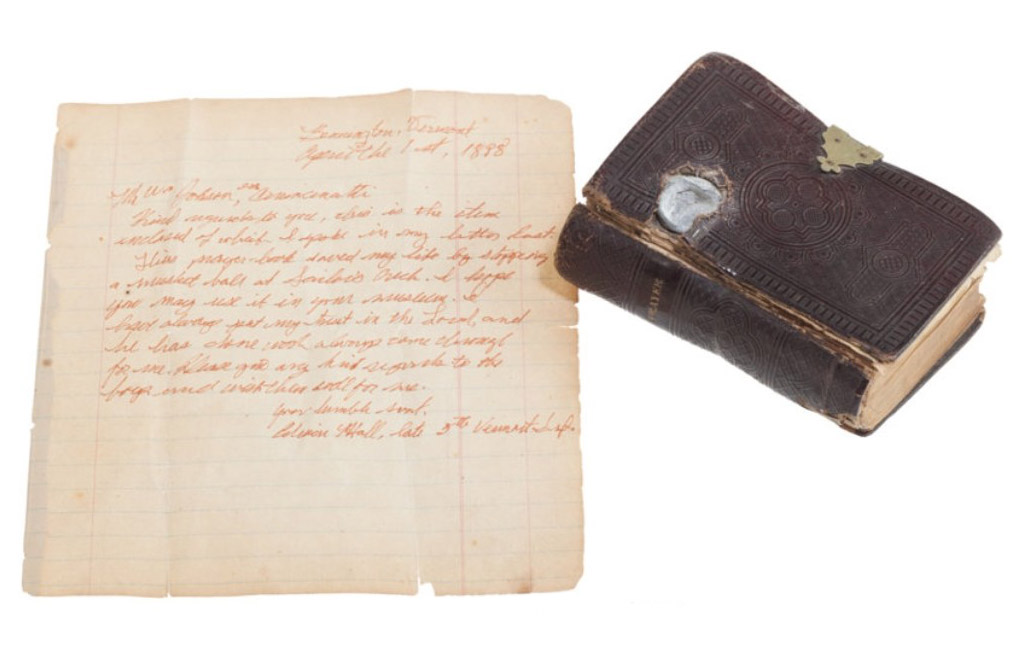 Bennington, Vermont
April the 1st, 1898
Kind regards to you, this is the item
enclosed of which I spoke in my letter last
This prayer-book saved my life by stopping
a musket ball at Sailor's Creek. I hope
you may use it in your museum. I
have always put my trust in the Lord, and
he has done always come through
for me. Please give my kind regards to the
boys and wish them well for me.
your humble servt.
Hall, late 5th Vermont Inf.